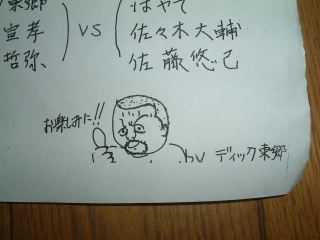 東郷 はやて
宣孝 VS 佐々木大輔
哲弥 佐藤悠己
お楽しみに!!
by ディック東郷